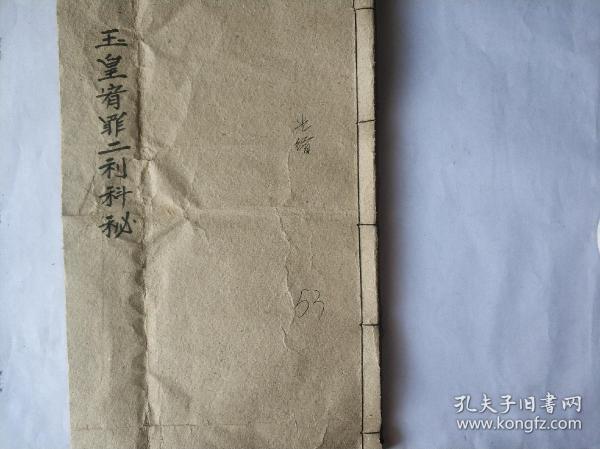 玉皇宥罪二利科秘
光绪
53
孔夫子旧書网
www.kongfz.com